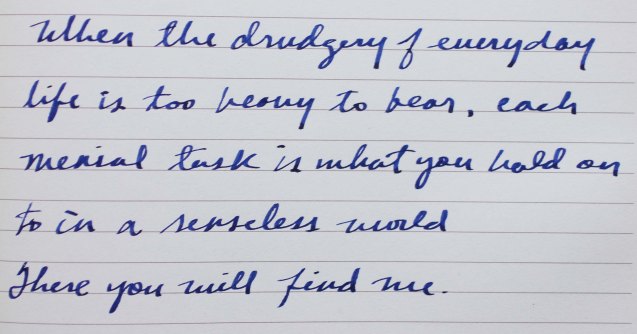 When the drudgery of everyday
life is too heavy to bear, each
menial task is what you hold on
to in a senseless world
There you will find me.